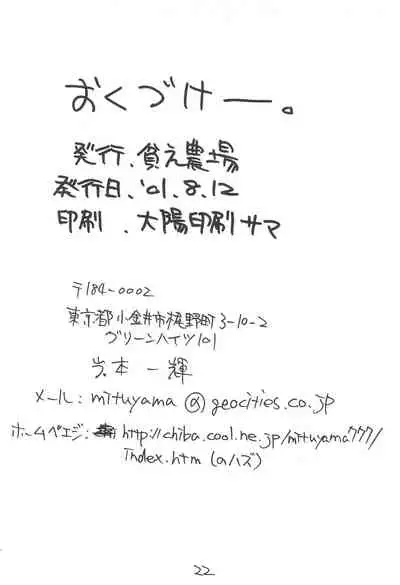 おくづけー。
発行、貧乏農場
発行日、'01.8.12
印刷、大陽印刷サマ
〒184-0002
東京都小金井市梶野町3-10-2
グリーンハイツ101
一輝
メール: mituyama @ geocities.co.jp
ホームペエジ: http://chiba.cool.ne.jp/mituyama777/
Index.htm (のハズ)
22